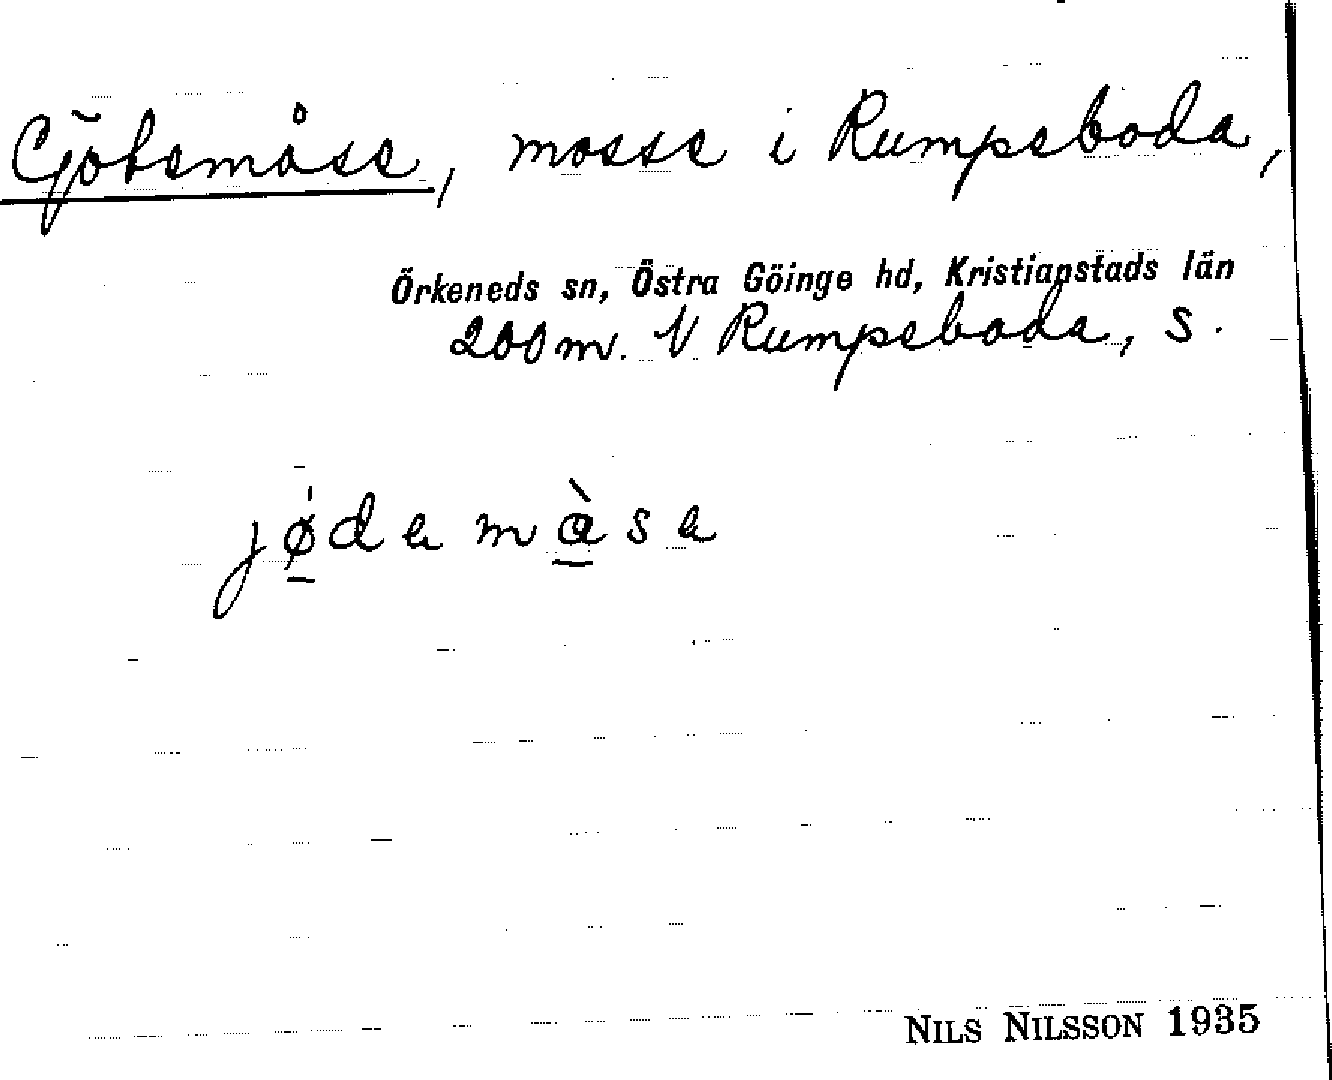 Gjötemåse, mosse i Rumpeboda,
Örkeneds sn, Östra Göinge hd, Kristianstads län
200 m. V Rumpeboda, s.
jødamåsa
NILS NILSSON 1935